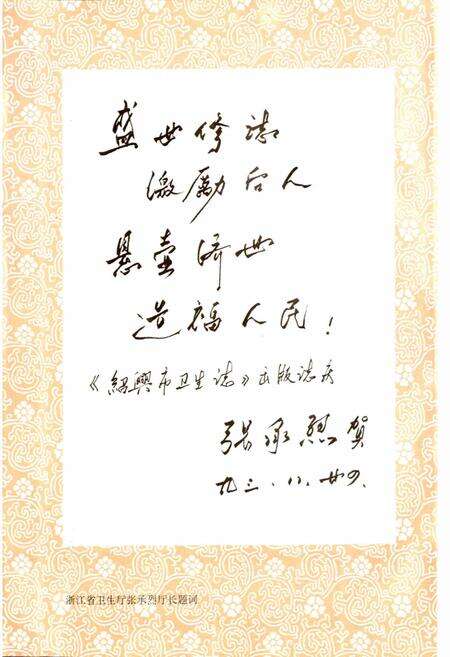 盛世修誌
激勵后人
悬壶济世
造福人民！
《紹興市卫生誌》出版誌庆
張承烈賀
九三.八.廿四.
浙江省卫生厅张承烈厅长题词